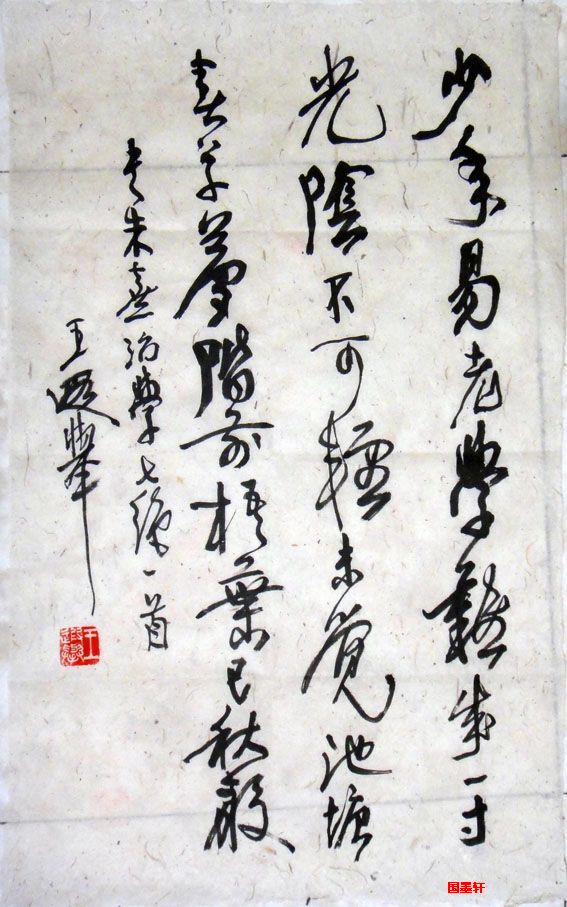 少年易老學難成一寸
光陰不可輕未覺池塘
春草夢階前梧葉已秋聲
書朱熹治學七絕一首
王舉
国墨轩